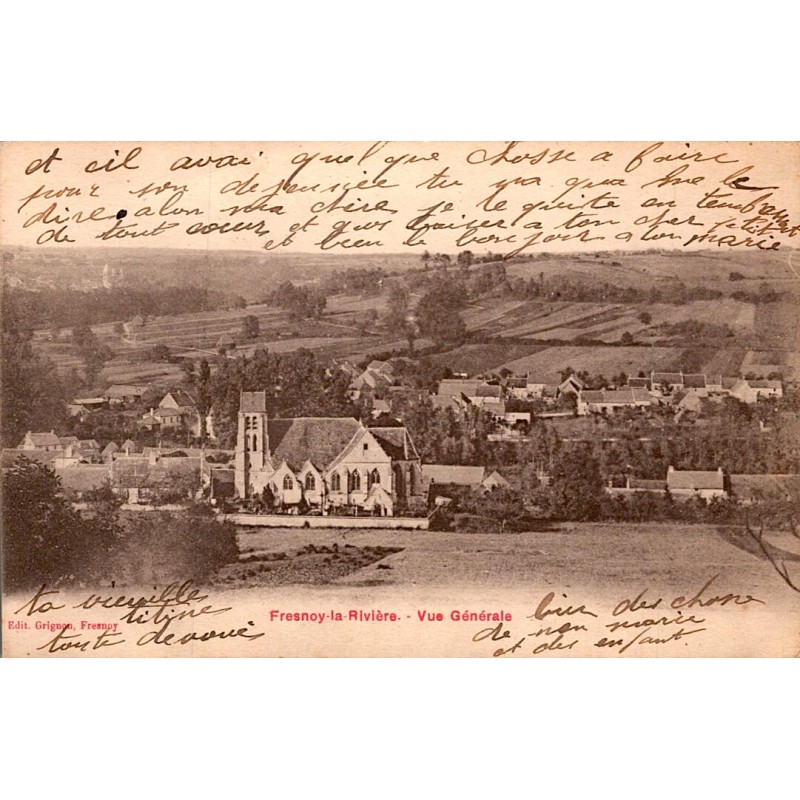 et cil avai quel que chosse a faire
pour son dejensiée tu ora qua me le
dire alon ma chère je te quitte en tembrassant
de tout cœur et gros baiser a ton cher petit
et bien le bonjour a ton marie
ta vieuille
titine
toute dévoué
Edit. Grignon, Fresnoy
Fresnoy-la-Rivière. - Vue Générale
bien des chosse
de mon marie
et des enfant.